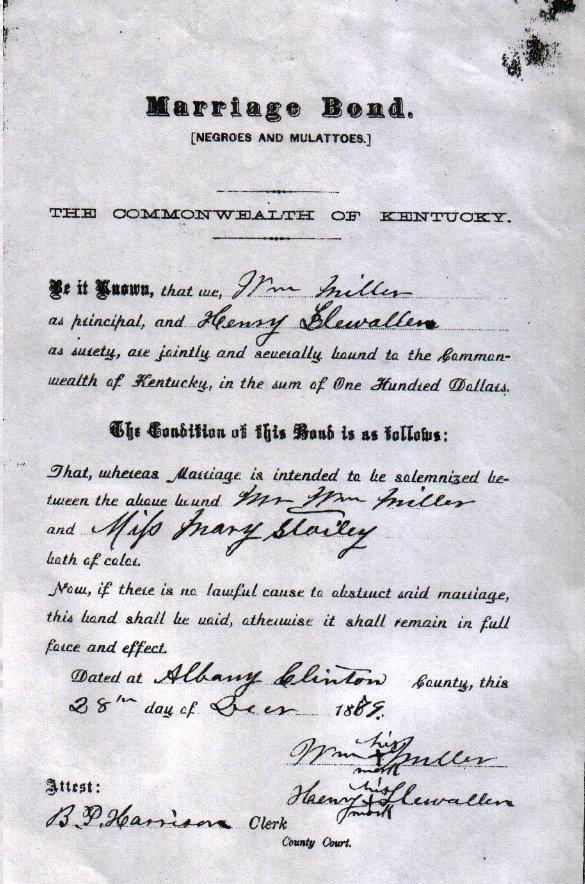 Marriage Bond.
[NEGROES AND MULATTOES.]
THE COMMONWEALTH OF KENTUCKY.
Be it Known, that we, Wm Miller
as principal, and Henry Llewallen
as surety, are jointly and severally bound to the Common-
wealth of Kentucky, in the sum of One Hundred Dollars.
The Condition of this Bond is as follows:
That, whereas Marriage is intended to be solemnized be-
tween the above bound Mr Wm Miller
and Miss Mary
both of color.
Now, if there is no lawful cause to obstruct said marriage,
this bond shall be void, otherwise it shall remain in full
force and effect.
Dated at Albany Clinton County, this
28th day of Decr 18 9.
Wm his x mark Miller
Henry his x mark Llewallen
Attest:
B. P. Harrison Clerk
County Court.